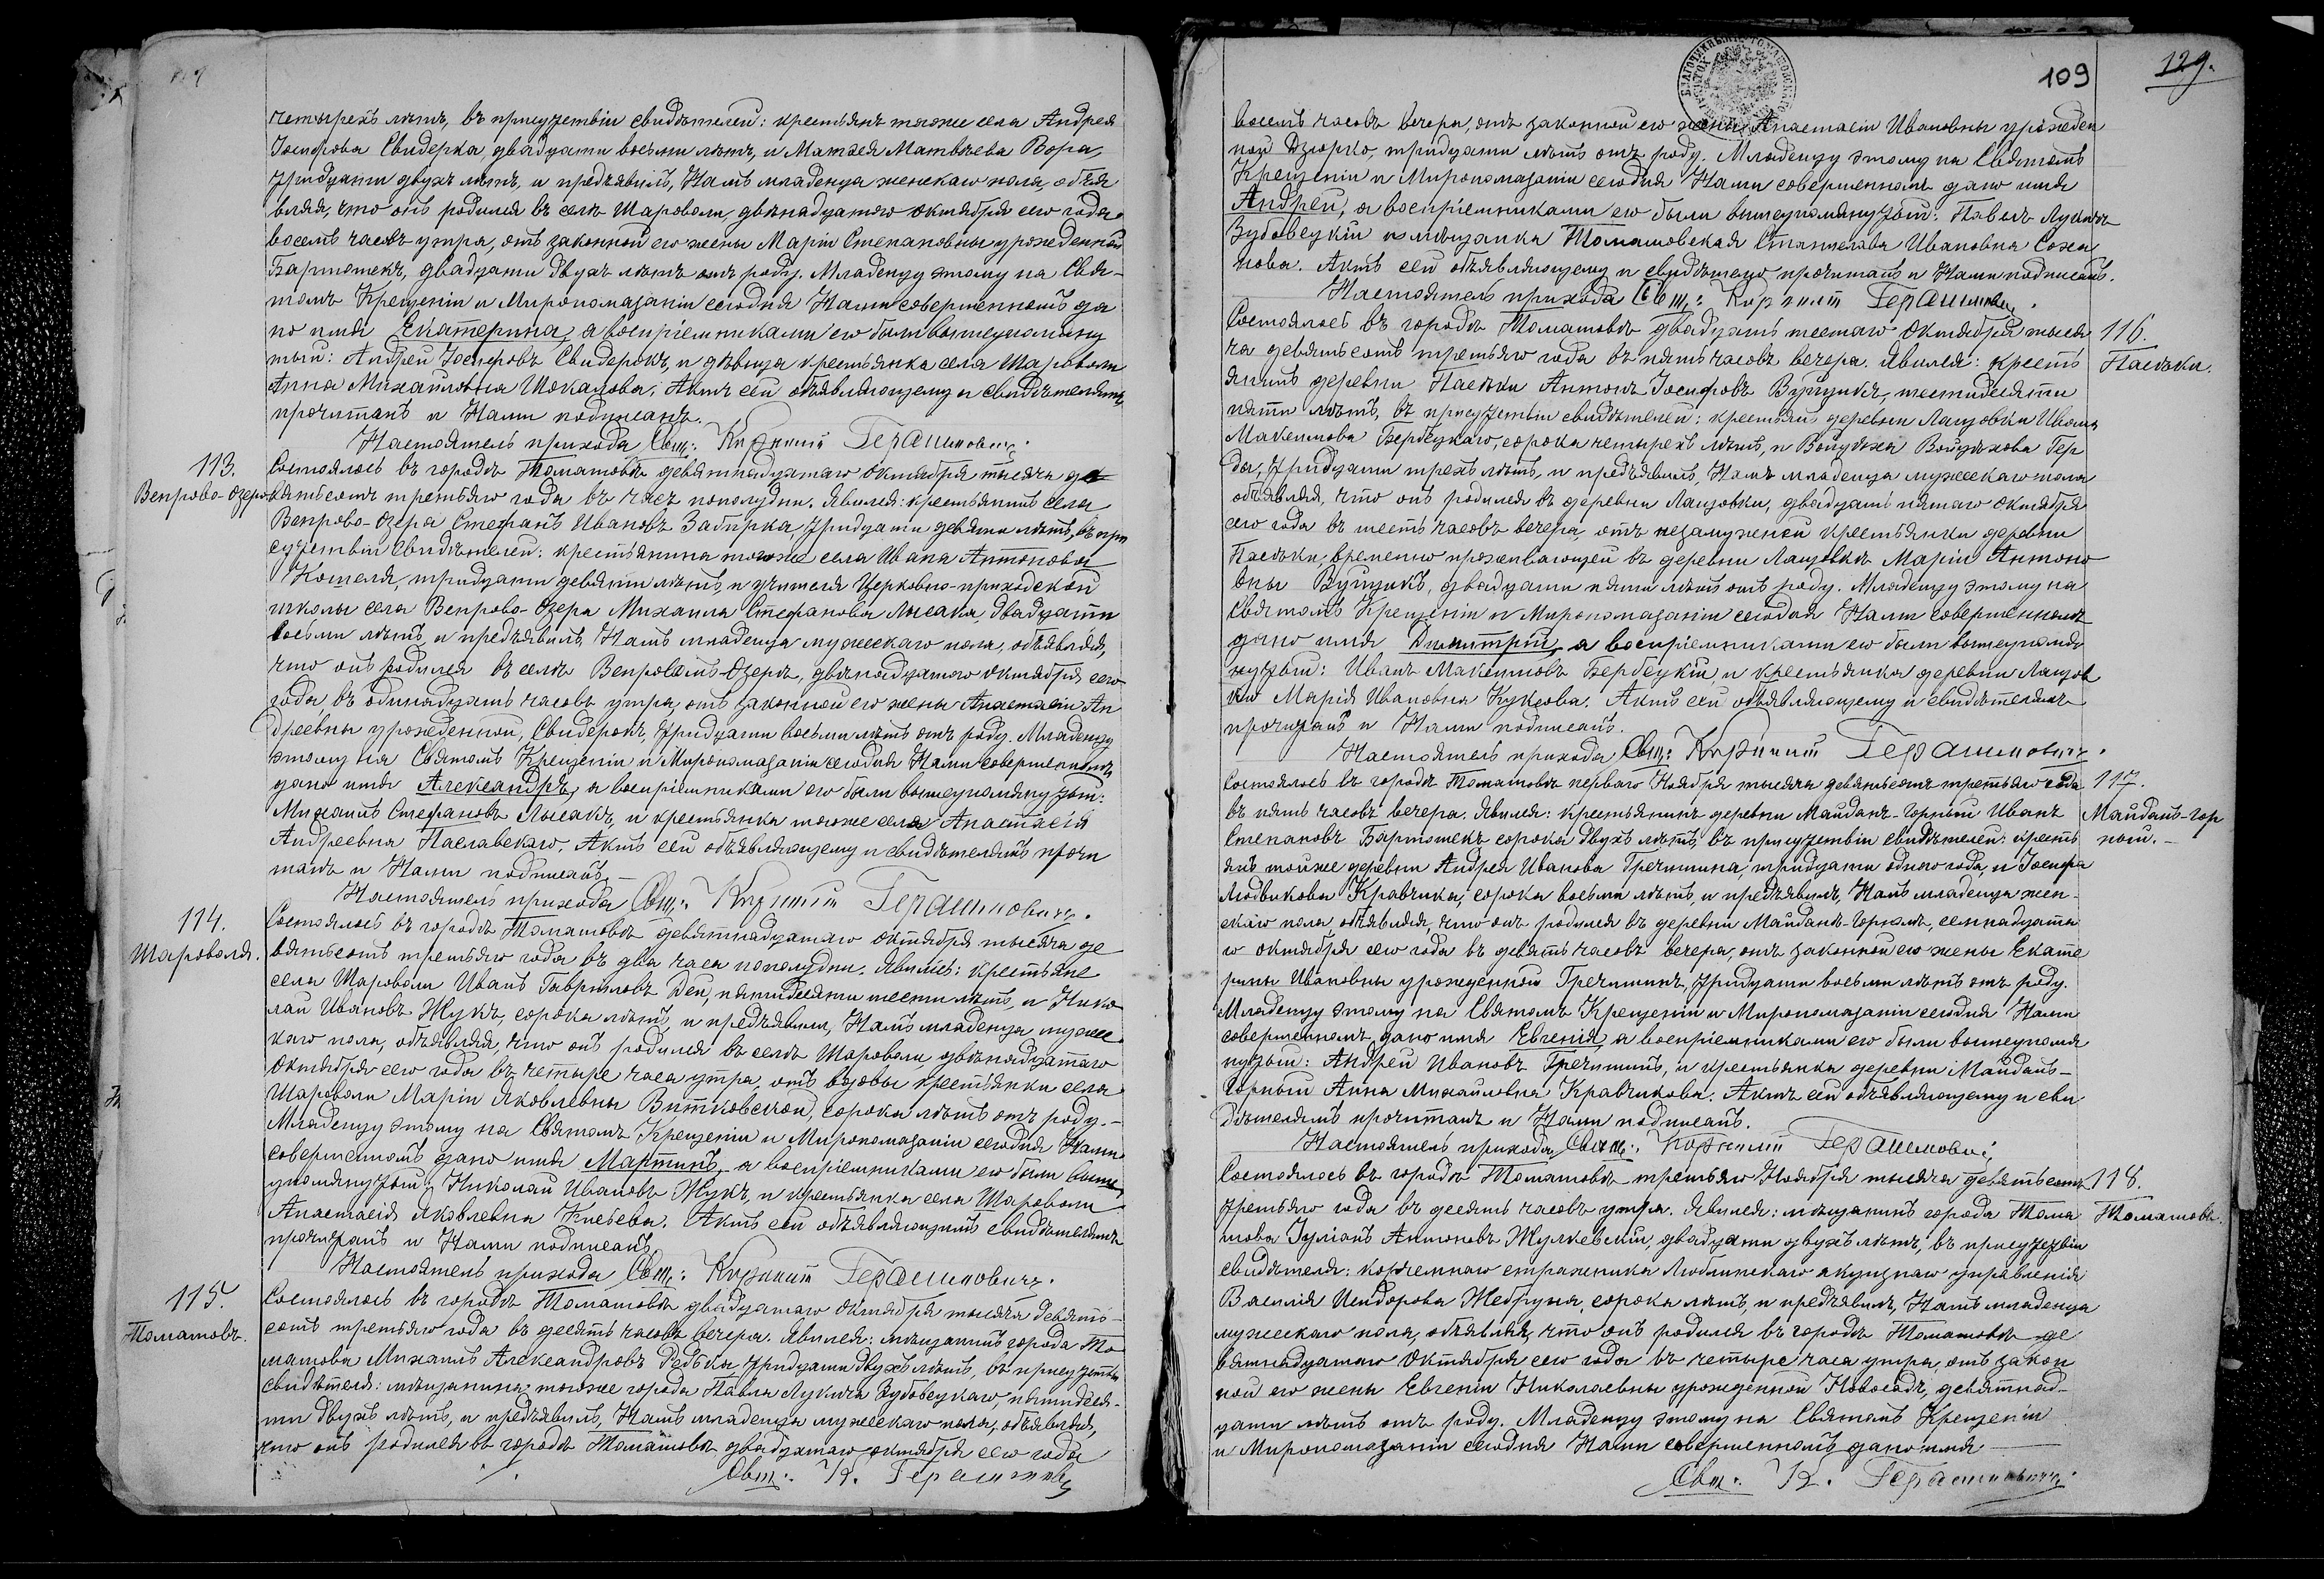 четырехъ лѣтъ, въ присутствіи свидѣтелей: крестьянъ тогоже села Андрея
Іосифова Свидерка, двадцати восьми лѣтъ, и Матвея Матвѣева Вора,
тридцати двухъ лѣтъ, и предъявилъ Намъ младенца женскаго пола, объя
вляя, что онъ родился въ селѣ Шароволи, двѣнадцатаго Октября сего года
восемь часовъ утра, отъ законной его жены Маріи Степановны урожденной
Бартошекъ, двадцати двухъ лѣтъ отъ роду. Младенцу этому на Свя-
томъ Крещеніи и Миропомазаніи сегодня Нами совершенномъ да
но имя Екатерина, а воспріемниками его были вышеупомяну
тый: Андрей Іосифовъ Свидерокъ, и дѣвица крестьянка села Шароволи
Анна Михайловна Шокалова. Актъ сей объявляющему и свидѣтелямъ
прочитанъ и Нами подписанъ.
Настоятель прихода Свщ: Корнилій Герашиловичъ.
113.
Вепрово-Озеро
Состоялось въ городѣ Томашовѣ девятнадцатаго Октября тысяча де
вятьсотъ третьяго года въ часъ пополудни. Явился: крестьянинъ села
Вепрово-Озера Стефанъ Ивановъ Забирка, тридцати девяти лѣтъ, въ при
сутствіи свидѣтелей: крестьянина тогоже села Ивана Антонова
Кошеля, тридцати девяти лѣтъ, и учителя Церковно-приходской
школы села Вепрово-Озера Михаила Стефанова Лысака, двадцати
восьми лѣтъ, и предъявилъ Намъ младенца мужескаго пола, объявляя,
что онъ родился въ селѣ Вепровомъ-Озерѣ, двѣнадцатаго Октября сего
года въ одинадцать часовъ утра, отъ законной его жены Анастасіи Ан
дреевны урожденной Свидерокъ, тридцати восьми лѣтъ отъ роду. Младенцу
этому на Святомъ Крещеніи и Миропомазаніи сегодня Нами совершенномъ
дано имя Александръ, а воспріемниками его были вышеупомянутый:
Михаилъ Стефановъ Лысакъ, и крестьянка тогоже села Анастасія
Андреевна Паславскаго. Актъ сей объявляющему и свидѣтелямъ прочи
танъ и Нами подписанъ.-
Настоятель прихода Свщ: Корнилій Герашиловичъ.
114.
Шароволя.
Состоялось въ городѣ Томашовѣ девятнадцатаго Октября тысяча де
вятьсотъ третьяго года въ два часа пополудни. Явились: крестьяне
села Шароволи Иванъ Гавриловъ Дец, пятидесяти шести лѣтъ, и Нико
лай Ивановъ Жукъ, сорока лѣтъ, и предъявили Намъ младенца муже
скаго пола, объявляя, что онъ родился въ селѣ Шароволи, двѣнадцатаго
Октября сего года въ четыре часа утра, отъ вдовы крестьянки села
Шароволи Маріи Яковлевны Витковской сорока лѣтъ отъ роду.-
Младенцу этому на Святомъ Крещеніи и Миропомазаніи сегодня Нами
совершенномъ дано имя Мартинъ, а воспріемниками его были выше
упомянутый: Николай Ивановъ Жукъ, и крестьянка села Шароволи
Анастасія Яковлевна Кнебева. Актъ сей объявляющимъ свидѣтелямъ
прочитанъ и Нами подписанъ.
Настоятель прихода Свщ: Корнилій Герашиловичъ.
115.
Томашовъ.
Состоялось въ городѣ Томашовѣ двадцатаго Октября тысяча девять-
сотъ третьяго года въ десять часовъ вечера. Явился: мѣщанинъ города То
машова Михаилъ Александровъ Редька, тридцати двухъ лѣтъ, въ присутствіи
свидѣтеля: мѣщанина тогоже города Павла Лукича Зубовецкаго, пятидеся-
ти двухъ лѣтъ, и предъявилъ Намъ младенца мужескаго пола, объявляя,
что онъ родился въ городѣ Томашовѣ двадцатаго Октября сего года
Свщ: К. Герашиловичъ
109
129.
восемь часовъ вечера, отъ законной его жены Анастасіи Ивановны урожден
ной Дзюрко, тридцати лѣтъ отъ роду. Младенцу этому на Святомъ
Крещеніи и Миропомазаніи сегодня Нами совершенномъ дано имя
Андрей, а воспріемниками его были вышеупомянутый: Павелъ Лукичъ
Зубовецкій и мѣщанка Томашовская Станислава Ивановна Соха
нова. Актъ сей объявляющему и свидѣтелю прочитанъ и Нами подписанъ.
Настоятель прихода Свщ: Корнилій Герашиловичъ.
116.
Пасѣки.
Состоялось въ городѣ Томашовѣ двадцать шестаго Октября тыся
ча девятьсотъ третьяго года въ пять часовъ вечера. Явился: кресть
янинъ деревни Пасѣки Антонъ Іосифовъ Вущукъ, шестидесяти
пяти лѣтъ, въ присутствіи свидѣтелей: крестьянъ деревни Лащовки Ивана
Максимова Бербецкаго, сорока четырехъ лѣтъ, и Войцѣха Войцѣхова Гер
да, тридцати трехъ лѣтъ, и предъявилъ Намъ младенца мужескаго пола
объявляя, что онъ родился въ деревни Лащовки, двадцать пятаго Октября
сего года въ шесть часовъ вечера, отъ незамужней крестьянки деревни
Пасѣки, временно проживающей въ деревни Лащовкѣ Маріи Антоно
вны Вущукъ, двадцати пяти лѣтъ отъ роду. Младенцу этому на
Святомъ Крещеніи и Миропомазаніи сегодня Нами совершенномъ
дано имя Димитрій, а воспріемниками его были вышеупомя
нутый: Иванъ Максимовъ Бербецкій, и крестьянка деревни Лащов
ки Марія Ивановна Куксова. Актъ сей объявляющему и свидѣтелямъ
прочитанъ и Нами подписанъ.
Настоятель прихода Свщ: Корнилій Герашиловичъ.
117.
Майданъ-Гор
ный.-
Состоялось въ городѣ Томашовѣ перваго Ноября тысяча девятьсотъ третьяго года
въ пять часовъ вечера. Явился: крестьянинъ деревни Майданъ-Горный Иванъ
Степановъ Бартошекъ сорока двухъ лѣтъ, въ присутствіи свидѣтелей: кресть
янъ тойже деревни Андрея Иванова Гречишина, тридцати одного года, и Іосифа
Людвикова Кравчика, сорока восьми лѣтъ, и предъявилъ Намъ младенца жен-
скаго пола, объявляя, что онъ родился въ деревни Майданѣ-Горномъ, семнадцата
го Октября сего года въ девять часовъ вечера, отъ законной его жены Екате
рины Ивановны урожденной Гречишинъ, тридцати восьми лѣтъ отъ роду.
Младенцу этому на Святомъ Крещеніи и Миропомазаніи сегодня Нами
совершенномъ дано имя Евгенія, а воспріемниками его были вышеупомя
нутый: Андрей Ивановъ Гречишинъ, и крестьянка деревни Майданъ-
Горный Анна Михайловна Кравчикова. Актъ сей объявляющему и сви
дѣтелямъ прочитанъ и Нами подписанъ.
Настоятель прихода Свящ: Корнилій Герашиловичъ
118.
Томашовъ.
Состоялось въ городѣ Томашовѣ третьяго Ноября тысяча девятьсотъ
третьяго года въ десять часовъ утра. Явился: мѣщанинъ города Тома
шова Іуліанъ Антоновъ Жулкевскій, двадцати двухъ лѣтъ, въ присутствіи
свидѣтеля: корчемнаго стражника Люблинскаго акцизнаго управленія
Василія Исидорова Жебруна, сорока лѣтъ, и предъявилъ Намъ младенца
мужескаго пола, объявляя, что онъ родился въ городѣ Томашовѣ де
вятнадцатаго Октября сего года въ четыре часа утра, отъ закон
ной его жены Евгеніи Николаевны урожденной Новосадъ, девятнад-
цати лѣтъ отъ роду. Младенцу этому на Святомъ Крещеніи
и Миропомазаніи сегодня Нами совершенномъ дано имя
Свщ: К. Герашиловичъ.